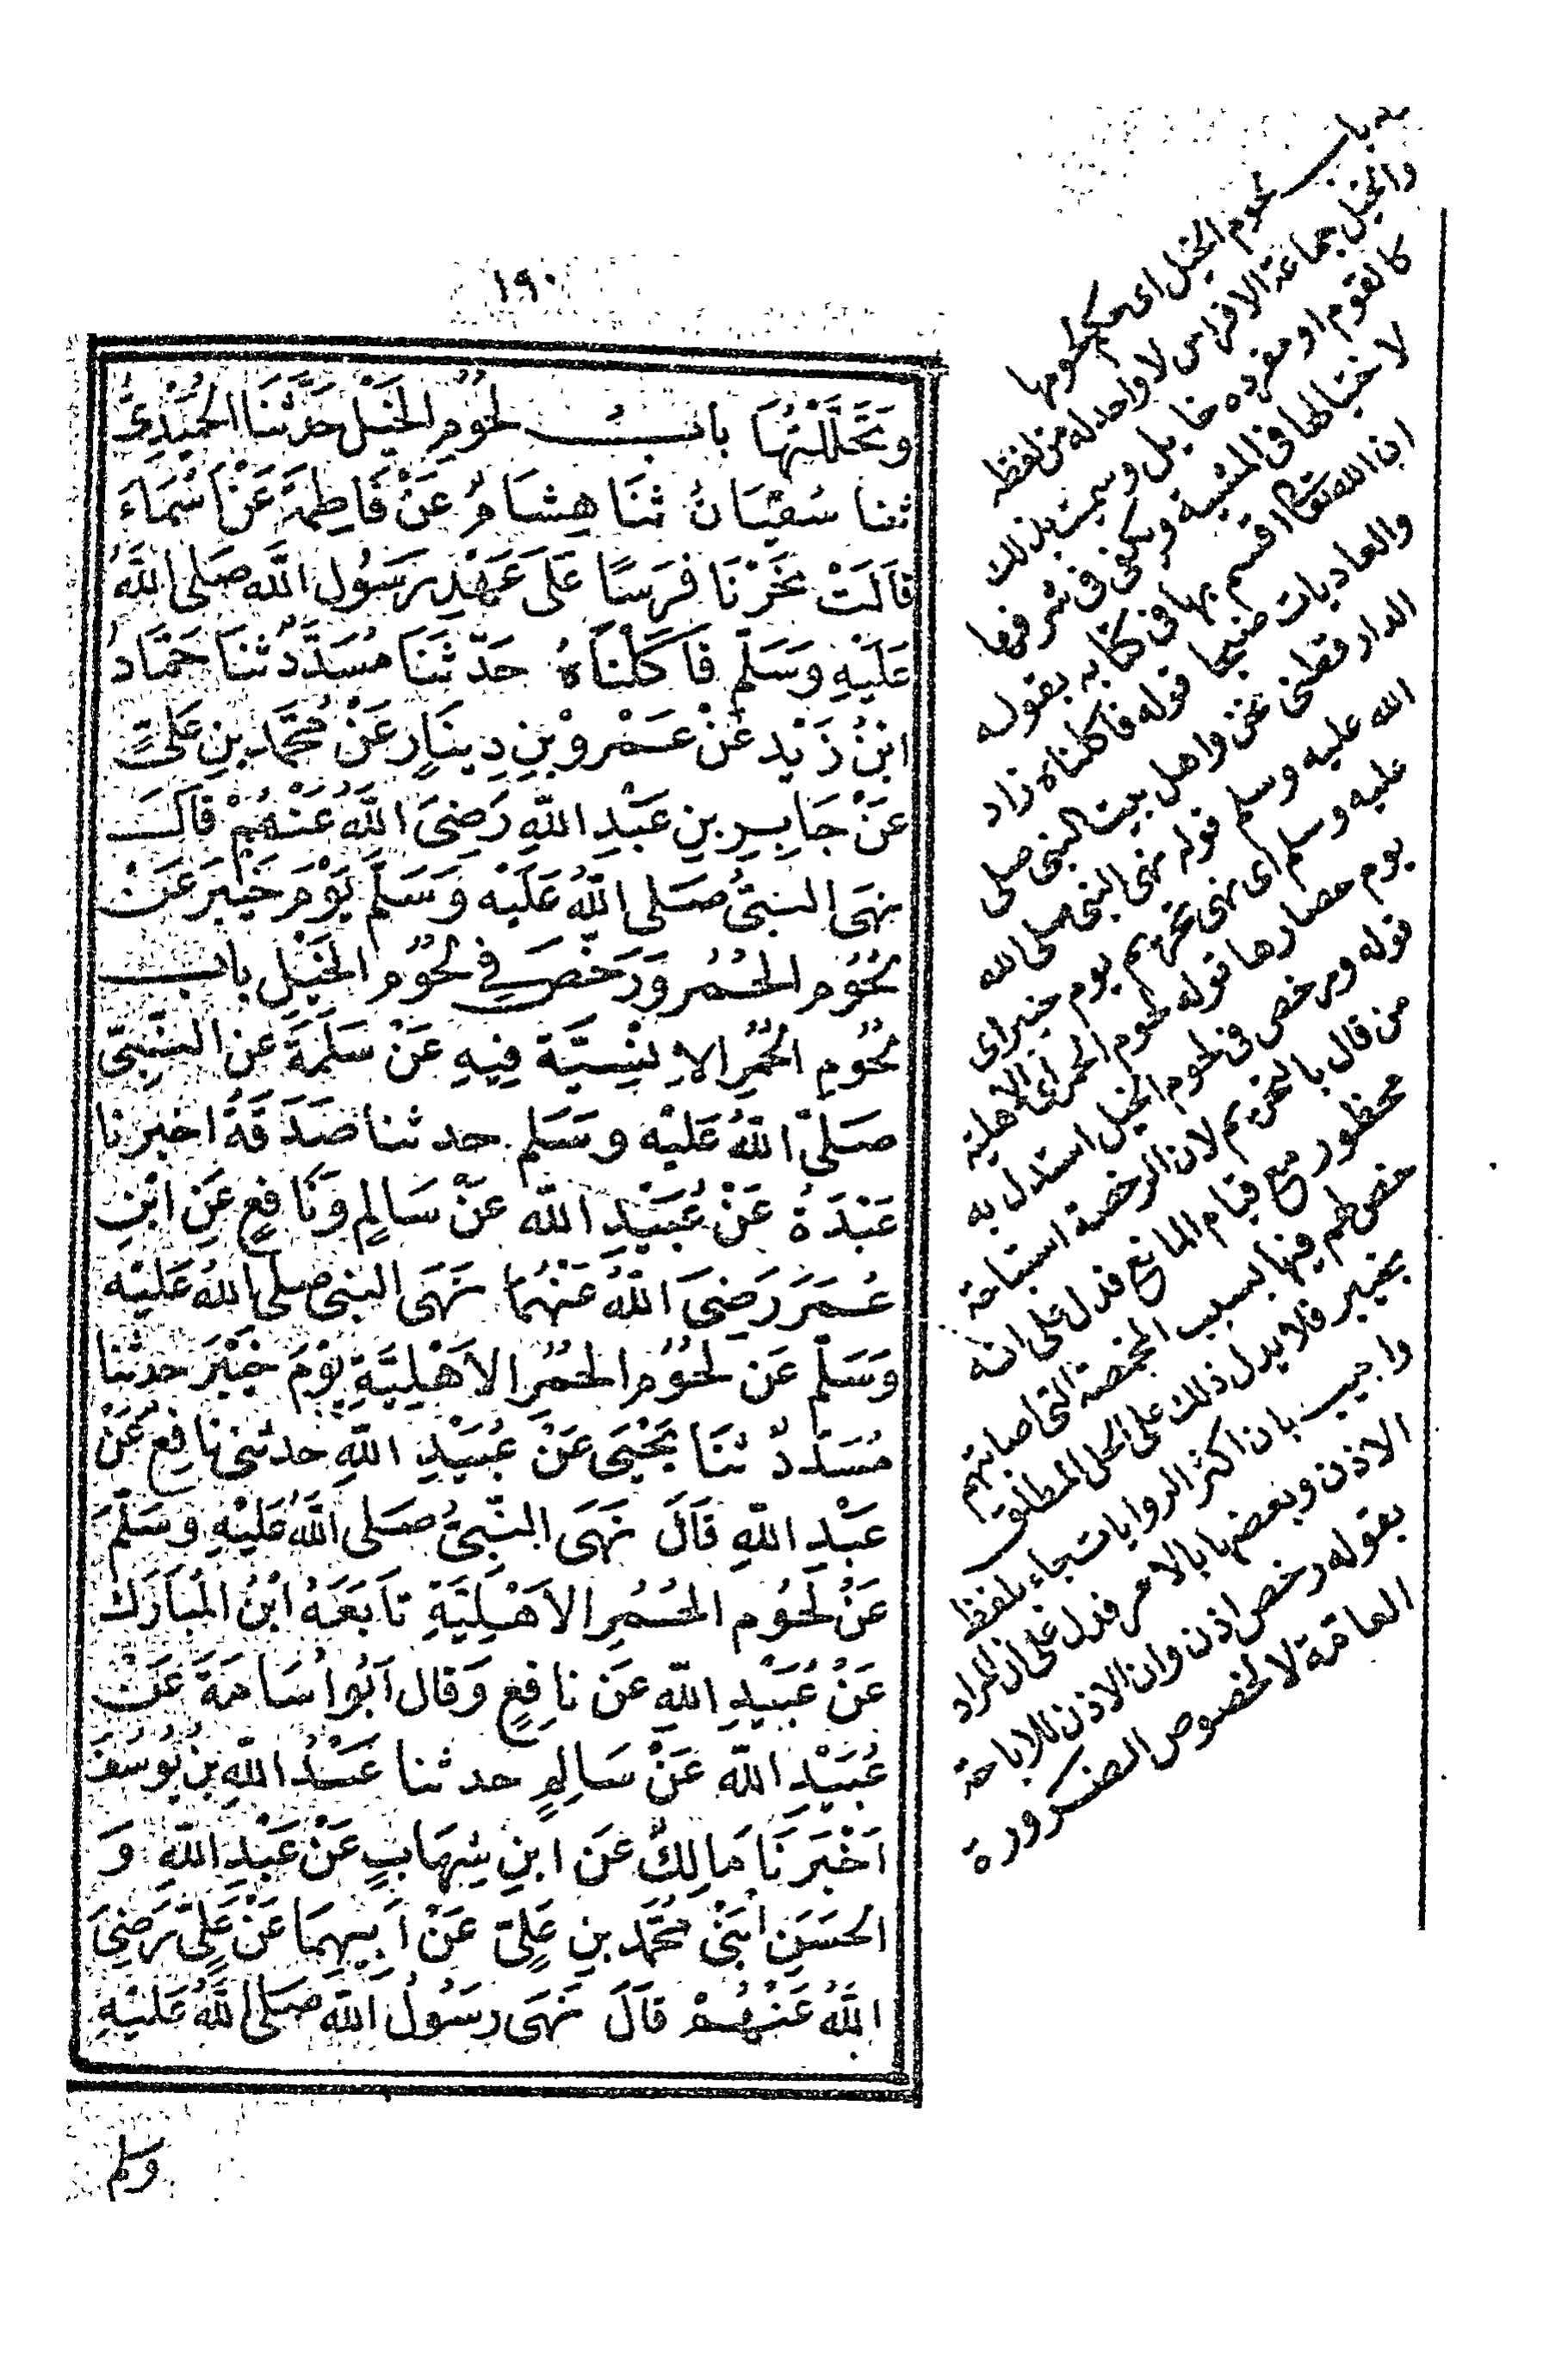 ١٩٠
وَتَحَلَّلْتُهَا بابُ لحُومِ الخَيْلِ حَدَّثَنَا الحُمَيْدِىُّ
ثنا سُفْيَانُ ثَنَا هِشَامُ عَنْ فَاطِمَةَ عَنْ اَسْمَاءَ
قَالَتْ نَحَرْنَا فَرَسًا عَلَى عَهْدِ رَسُولِ اللَّهِ صَلى اللَّهُ
عَلَيْهِ وَسَلَّمَ فَاَكَلْنَاهُ حَدّثَنَا مُسَدَّدٌ ثنَا حَمَّادُ
ابْنُ زَيْدٍ عَنْ عَمْرِو بْنِ دِينَارٍ عَنْ مُحَمَّدِ بنِ عَلىٍّ
عَنْ جَابِرِ بنِ عَبْدِ اللَّهِ رَضِىَ اللَّهُ عَنْهُمْ قَالَ
نَهَى النبىُّ صَلى اللَّهُ عَلَيْه وَسَلَّمَ يَوْمَ خَيْبَرَ عَنْ
لحُوُمِ الحُمُرِ وَرَخَّصَ فِي لحُوُمِ الخَيْلِ باب
لحُوُمِ الحُمُرِ الاِنْسِيَّةِ فِيهِ عَنْ سَلَمَةَ عَنِ النَّبِىِّ
صَلىَّ اللَّهُ عَلَيْه وَسَلم حدثنا صَدَقَةُ اخبرنا
عَبْدَةُ عَنْ عُبَيْدِ اللَّه عَنْ سَالِمٍ وَنَافِعٍ عَنِ ابْنِ
عُمَرَ رَضِىَ اللَّهُ عَنْهُمَا نَهَى النبىُّ صلى اللَّهُ عَلَيْه
وَسَلَّمَ عَن لحُوُمِ الحُمُرِ الاَهْلِيَّةِ يَوْمَ خَيْبَرَ حدثنا
مُسَدَّدٌ ثنَا يَحْيَى عَنْ عُبَيْدِ اللَّهِ حدثنى نَافِعٌ عَنْ
عَبْدِ اللَّهِ قَالَ نَهَى النَّبىُّ صَلى اللَّهُ عَلَيْهِ وَسَلَّمَ
عَنْ لحُوُمِ الحُمُرِ الاَهْلِيَّةِ تَابَعَهُ ابْنُ المُبَارَك
عَنْ عُبَيْدِ اللَّهِ عَن نافِعٍ وَقال اَبُو اُسَامَةَ عَنْ
عُبَيْدِ اللَّه عَنْ سَالِمٍ حدثنا عَبْدُ اللَّهِ بنُ يُوسُفَ
اَخْبَرَنَا مَالِكٌ عَن ابنِ شِهَابٍ عَنْ عَبْدِ اللَّهِ وَ
الحَسَنِ ابْنَىْ مُحَمَّدِ بنِ عَلِىّ عَنْ اَبِيهِمَا عَنْ عَلِىٍّ رَضِىَ
اللَّهُ عَنْهُمْ قَالَ نَهَى رَسُولُ اللَّه صَلى اللَّهُ عَلَيْهِ
وسلم
باب لحوم الخيل اى حكم لحومها
والخيل جماعة الافراس لا واحد له من لفظه
كالقوم او مفرده خايل وسميت بذلك
لاختيالها فى المشية ويكفى فى شرفها
ان الله تعالى اقسم بها فى كتابه بقوله
والعاديات ضبحا قوله فاكلناه زاد
الدارقطنى نحن واهل بيت النبى صلى
الله عليه وسلم قوله نهى النبى صلى الله
عليه وسلم اى نهى تحريم يوم خيبر اى
يوم حصارها قوله لحوم الحمر اى الاهلية
قوله ورخص فى لحوم الخيل استدل به
من قال بالتحريم لان الرخصة استباحة
محظور مع قيام المانع فدل على انه
رخص لهم فيها بسبب المخمصة التى اصابتهم
بخيبر فلا يدل ذلك على الحل المطلق
واجيب بان اكثر الروايات جاء بلفظ
الاذن وبعضها بالامر فدل على ان المراد
بقوله رخص اذن وان الاذن للاباحة
العامة لا لخصوص الضرورة